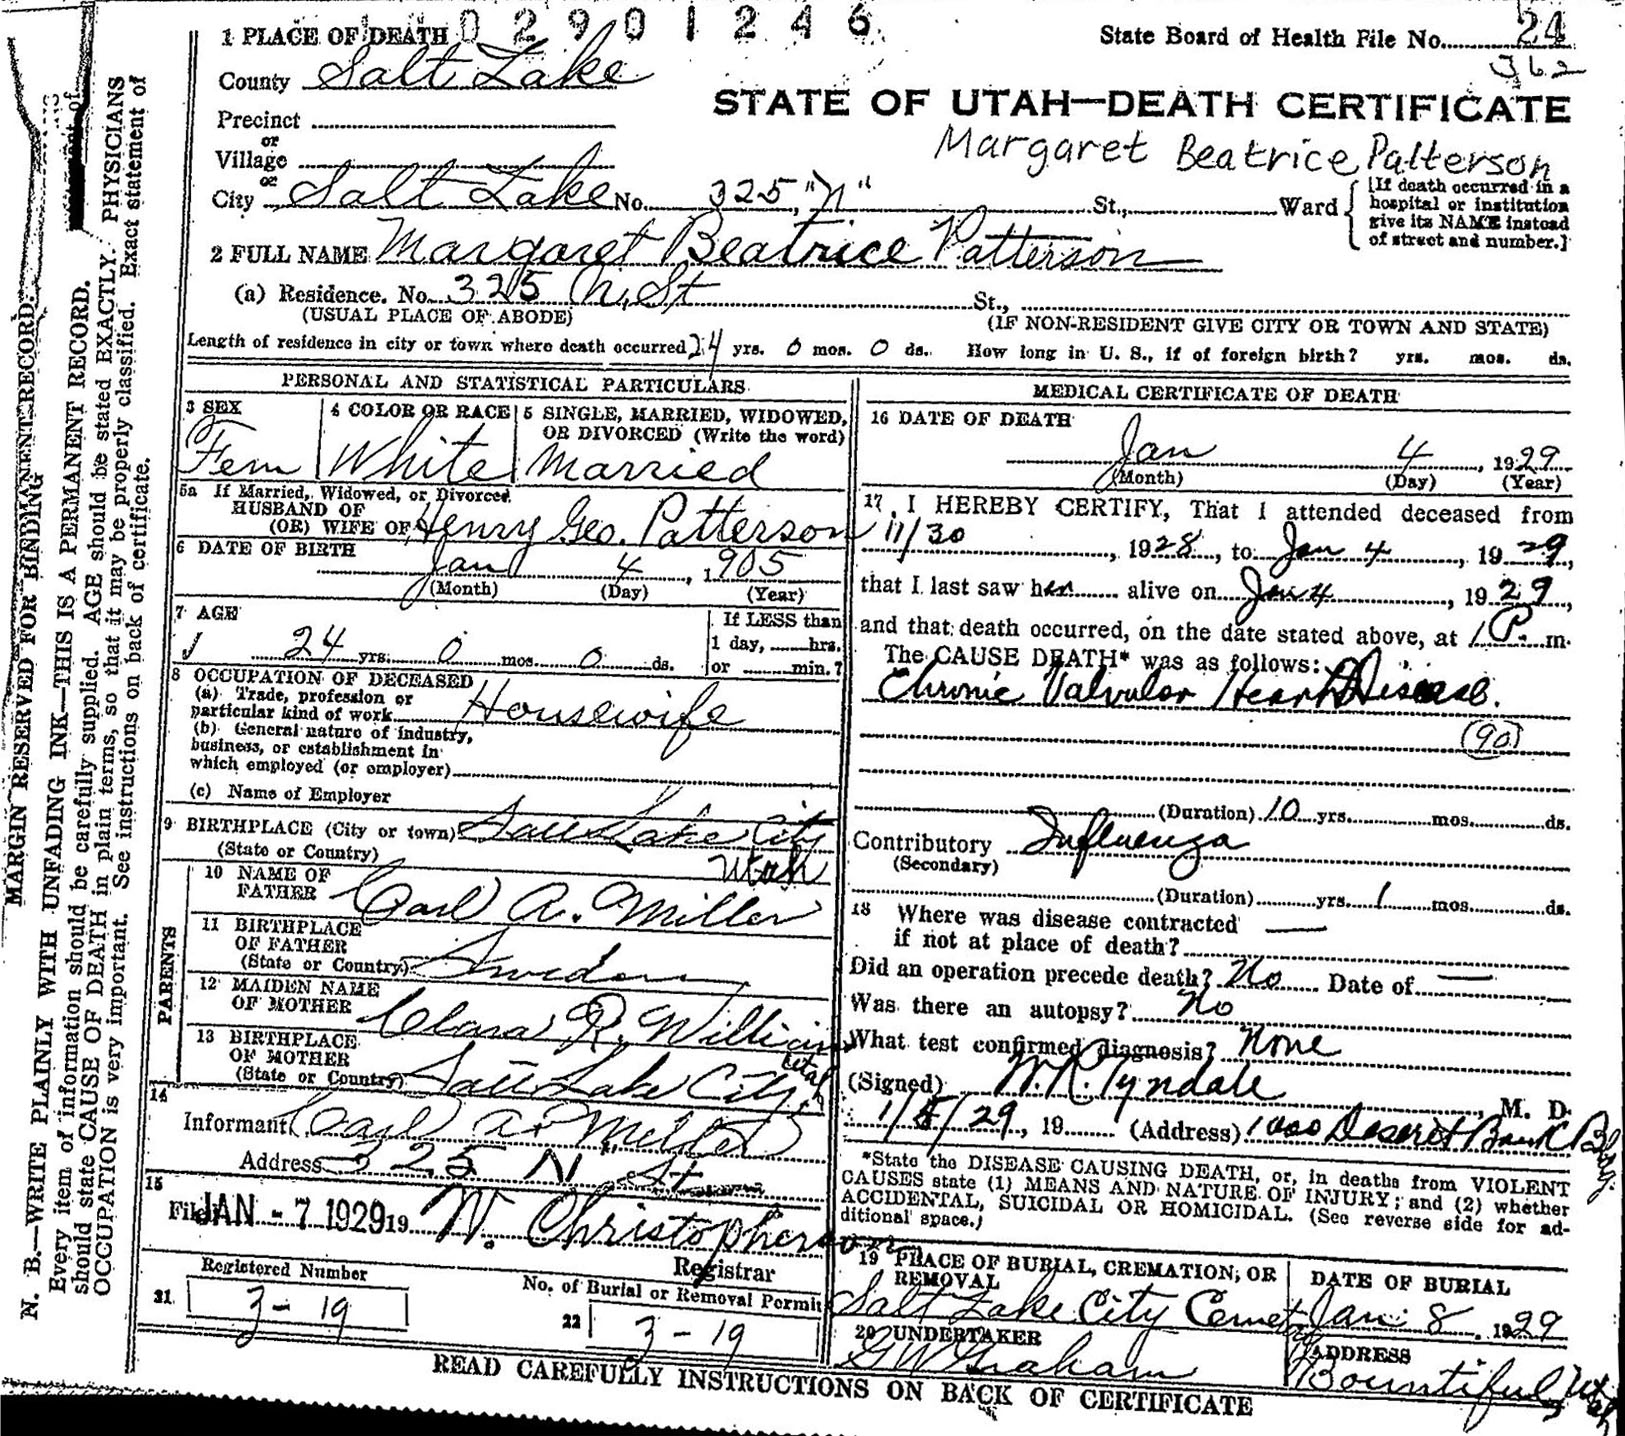 0 2 9 0 1 2 4 6
1 PLACE OF DEATH
State Board of Health File No. 24
362
County Salt Lake
STATE OF UTAH—DEATH CERTIFICATE
Precinct
Margaret Beatrice Patterson
or
Village
or
City Salt Lake No. 325 "N" St., Ward
[If death occurred in a
hospital or institution
give its NAME instead
of street and number.]
2 FULL NAME Margaret Beatrice Patterson
(a) Residence. No. 325 N. St St.,
(USUAL PLACE OF ABODE) (IF NON-RESIDENT GIVE CITY OR TOWN AND STATE)
Length of residence in city or town where death occurred 24 yrs. 0 mos. 0 ds. How long in U. S., if of foreign birth? yrs. mos. ds.
PERSONAL AND STATISTICAL PARTICULARS
3 SEX
Fem
4 COLOR OR RACE
White
5 SINGLE, MARRIED, WIDOWED,
OR DIVORCED (Write the word)
Married
5a If Married, Widowed, or Divorced
HUSBAND OF
(OR) WIFE OF Henry Geo. Patterson
6 DATE OF BIRTH
Jan 4, 1905
(Month) (Day) (Year)
7 AGE
24 yrs. 0 mos. 0 ds.
If LESS than
1 day, hrs.
or min.?
8 OCCUPATION OF DECEASED
(a) Trade, profession or
particular kind of work Housewife
(b) General nature of industry,
business, or establishment in
which employed (or employer)
(c) Name of Employer
9 BIRTHPLACE (City or town) Salt Lake City
(State or Country) Utah
PARENTS
10 NAME OF
FATHER Carl A. Miller
11 BIRTHPLACE
OF FATHER
(State or Country) Sweden
12 MAIDEN NAME
OF MOTHER Clara R. Williams
13 BIRTHPLACE
OF MOTHER
(State or Country) Salt Lake City Utah
14
Informant Carl A. Miller
Address 325 N St
15
Filed JAN - 7 1929 19 W. Christopherson
Registrar
Registered Number
21 3-19
No. of Burial or Removal Permit
22 3-19
MEDICAL CERTIFICATE OF DEATH
16 DATE OF DEATH
Jan 4, 1929
(Month) (Day) (Year)
17 I HEREBY CERTIFY, That I attended deceased from
11/30, 1928, to Jan 4, 1929,
that I last saw her alive on Jan 4, 1929,
and that death occurred, on the date stated above, at 1 P. m.
The CAUSE DEATH* was as follows:
Chronic Valvular Heart Disease.
(90)
(Duration) 10 yrs. mos. ds.
Contributory Influenza
(Secondary)
(Duration) yrs. 1 mos. ds.
18 Where was disease contracted
if not at place of death? —
Did an operation precede death? No Date of —
Was there an autopsy? No
What test confirmed diagnosis? None
(Signed) W.R. Tyndale, M. D.
1/5/29, 19 (Address) 1000 Deseret Bank Bldg.
*State the DISEASE CAUSING DEATH, or, in deaths from VIOLENT
CAUSES state (1) MEANS AND NATURE OF INJURY; and (2) whether
ACCIDENTAL, SUICIDAL OR HOMICIDAL. (See reverse side for ad-
ditional space.)
19 PLACE OF BURIAL, CREMATION, OR
REMOVAL
Salt Lake City Cemetry
DATE OF BURIAL
Jan 8, 1929
20 UNDERTAKER
GW Graham
ADDRESS
Bountiful, Utah
READ CAREFULLY INSTRUCTIONS ON BACK OF CERTIFICATE
MARGIN RESERVED FOR BINDING
PERMANENT RECORD.
N. B.—WRITE PLAINLY WITH UNFADING INK—THIS IS A PERMANENT RECORD.
Every item of information should be carefully supplied. AGE should be stated EXACTLY. PHYSICIANS
should state CAUSE OF DEATH in plain terms, so that it may be properly classified. Exact statement of
OCCUPATION is very important. See instructions on back of certificate.